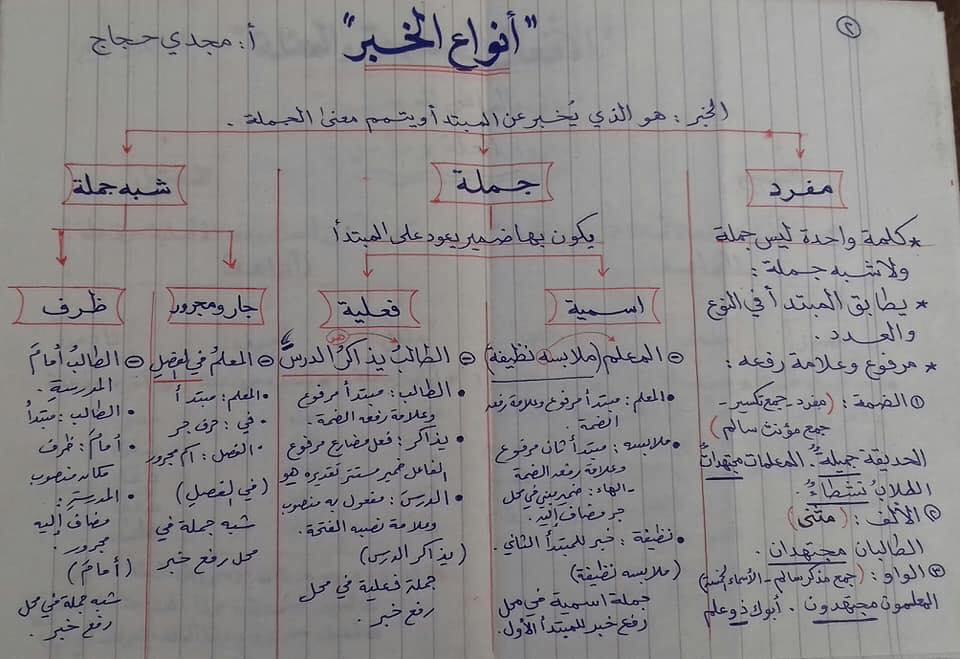 ٢
"أنواع الخبر"
أ: مجدي حجاج
الخبر : هو الذي يُخبر عن المبتدأ ويتمم معنى الجملة .
مفرد
* كلمة واحدة ليس جملة
ولا شبه جملة :
* يطابق المبتدأ في النوع
والعدد .
* مرفوع وعلامة رفعه :
① الضمة : (مفرد - جمع تكسير -
جمع مؤنث سالم)
الحديقة جميلةٌ . المعلمات مجتهداتٌ
الطلابُ نشطاءُ .
② الألف : (مثنى)
الطالبان مجتهدان .
③ الواو : (جمع مذكر سالم - الأسماء الخمسة)
المعلمون مجتهدون . أبوك ذو علم
جملة
يكون بها ضمير يعود على المبتدأ
اسمية
المعلم (ملابسه نظيفة)
• المعلم : مبتدأ مرفوع وعلامة رفعه
الضمة .
• ملابسه : مبتدأ ثان مرفوع
وعلامة رفعه الضمة
- الهاء : ضمير مبني في محل
جر مضاف إليه .
• نظيفة : خبر للمبتدأ الثاني .
(ملابسه نظيفة)
جملة اسمية في محل
رفع خبر للمبتدأ الأول .
فعلية
هو
الطالبُ يذاكرُ الدرسَ
• الطالب : مبتدأ مرفوع
وعلامة رفعه الضمة .
• يذاكر : فعل مضارع مرفوع
الفاعل ضمير مستتر تقديره هو
• الدرسَ : مفعول به منصوب
وعلامة نصبه الفتحة .
(يذاكر الدرس)
جملة فعلية في محل
رفع خبر .
شبه جملة
جار ومجرور
المعلمُ في الفصلِ
• المعلم : مبتدأ
• في : حرف جر
• الفصل : اسم مجرور
(في الفصل)
شبه جملة في
محل رفع خبر
ظرف
الطالبُ أمامَ
المدرسةِ .
• الطالب : مبتدأ
• أمامَ : ظرف
مكان منصوب
• المدرسةِ :
مضاف إليه
مجرور .
(أمامَ)
شبه جملة في محل
رفع خبر .